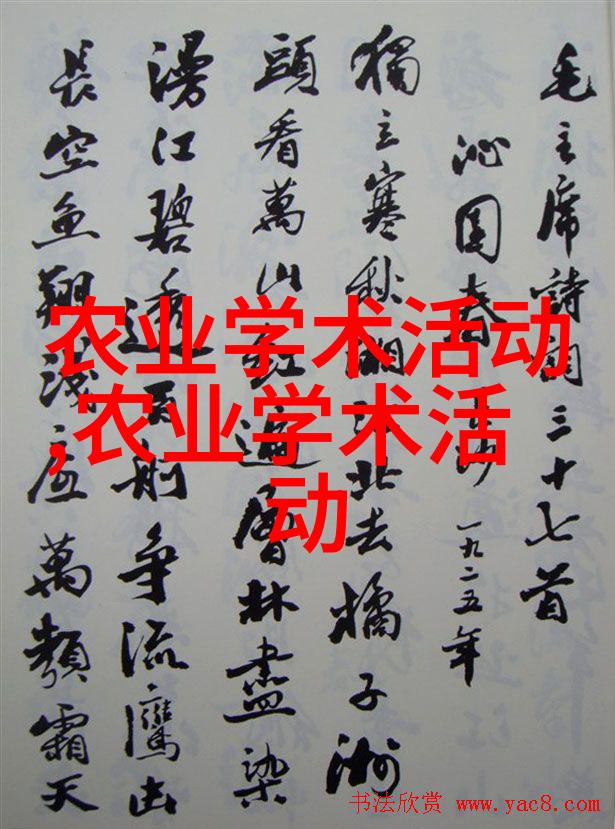 毛主席詩詞三十七首
沁园春 长沙 一九二五年
獨立寒秋湘江北去橘子洲
頭看萬山紅遍層林盡染
漫江碧透百舸争流鷹击
長空魚翔淺底萬類霜天
农业学术活动
,农业学术活
动
书法欣赏 www.yac8.com